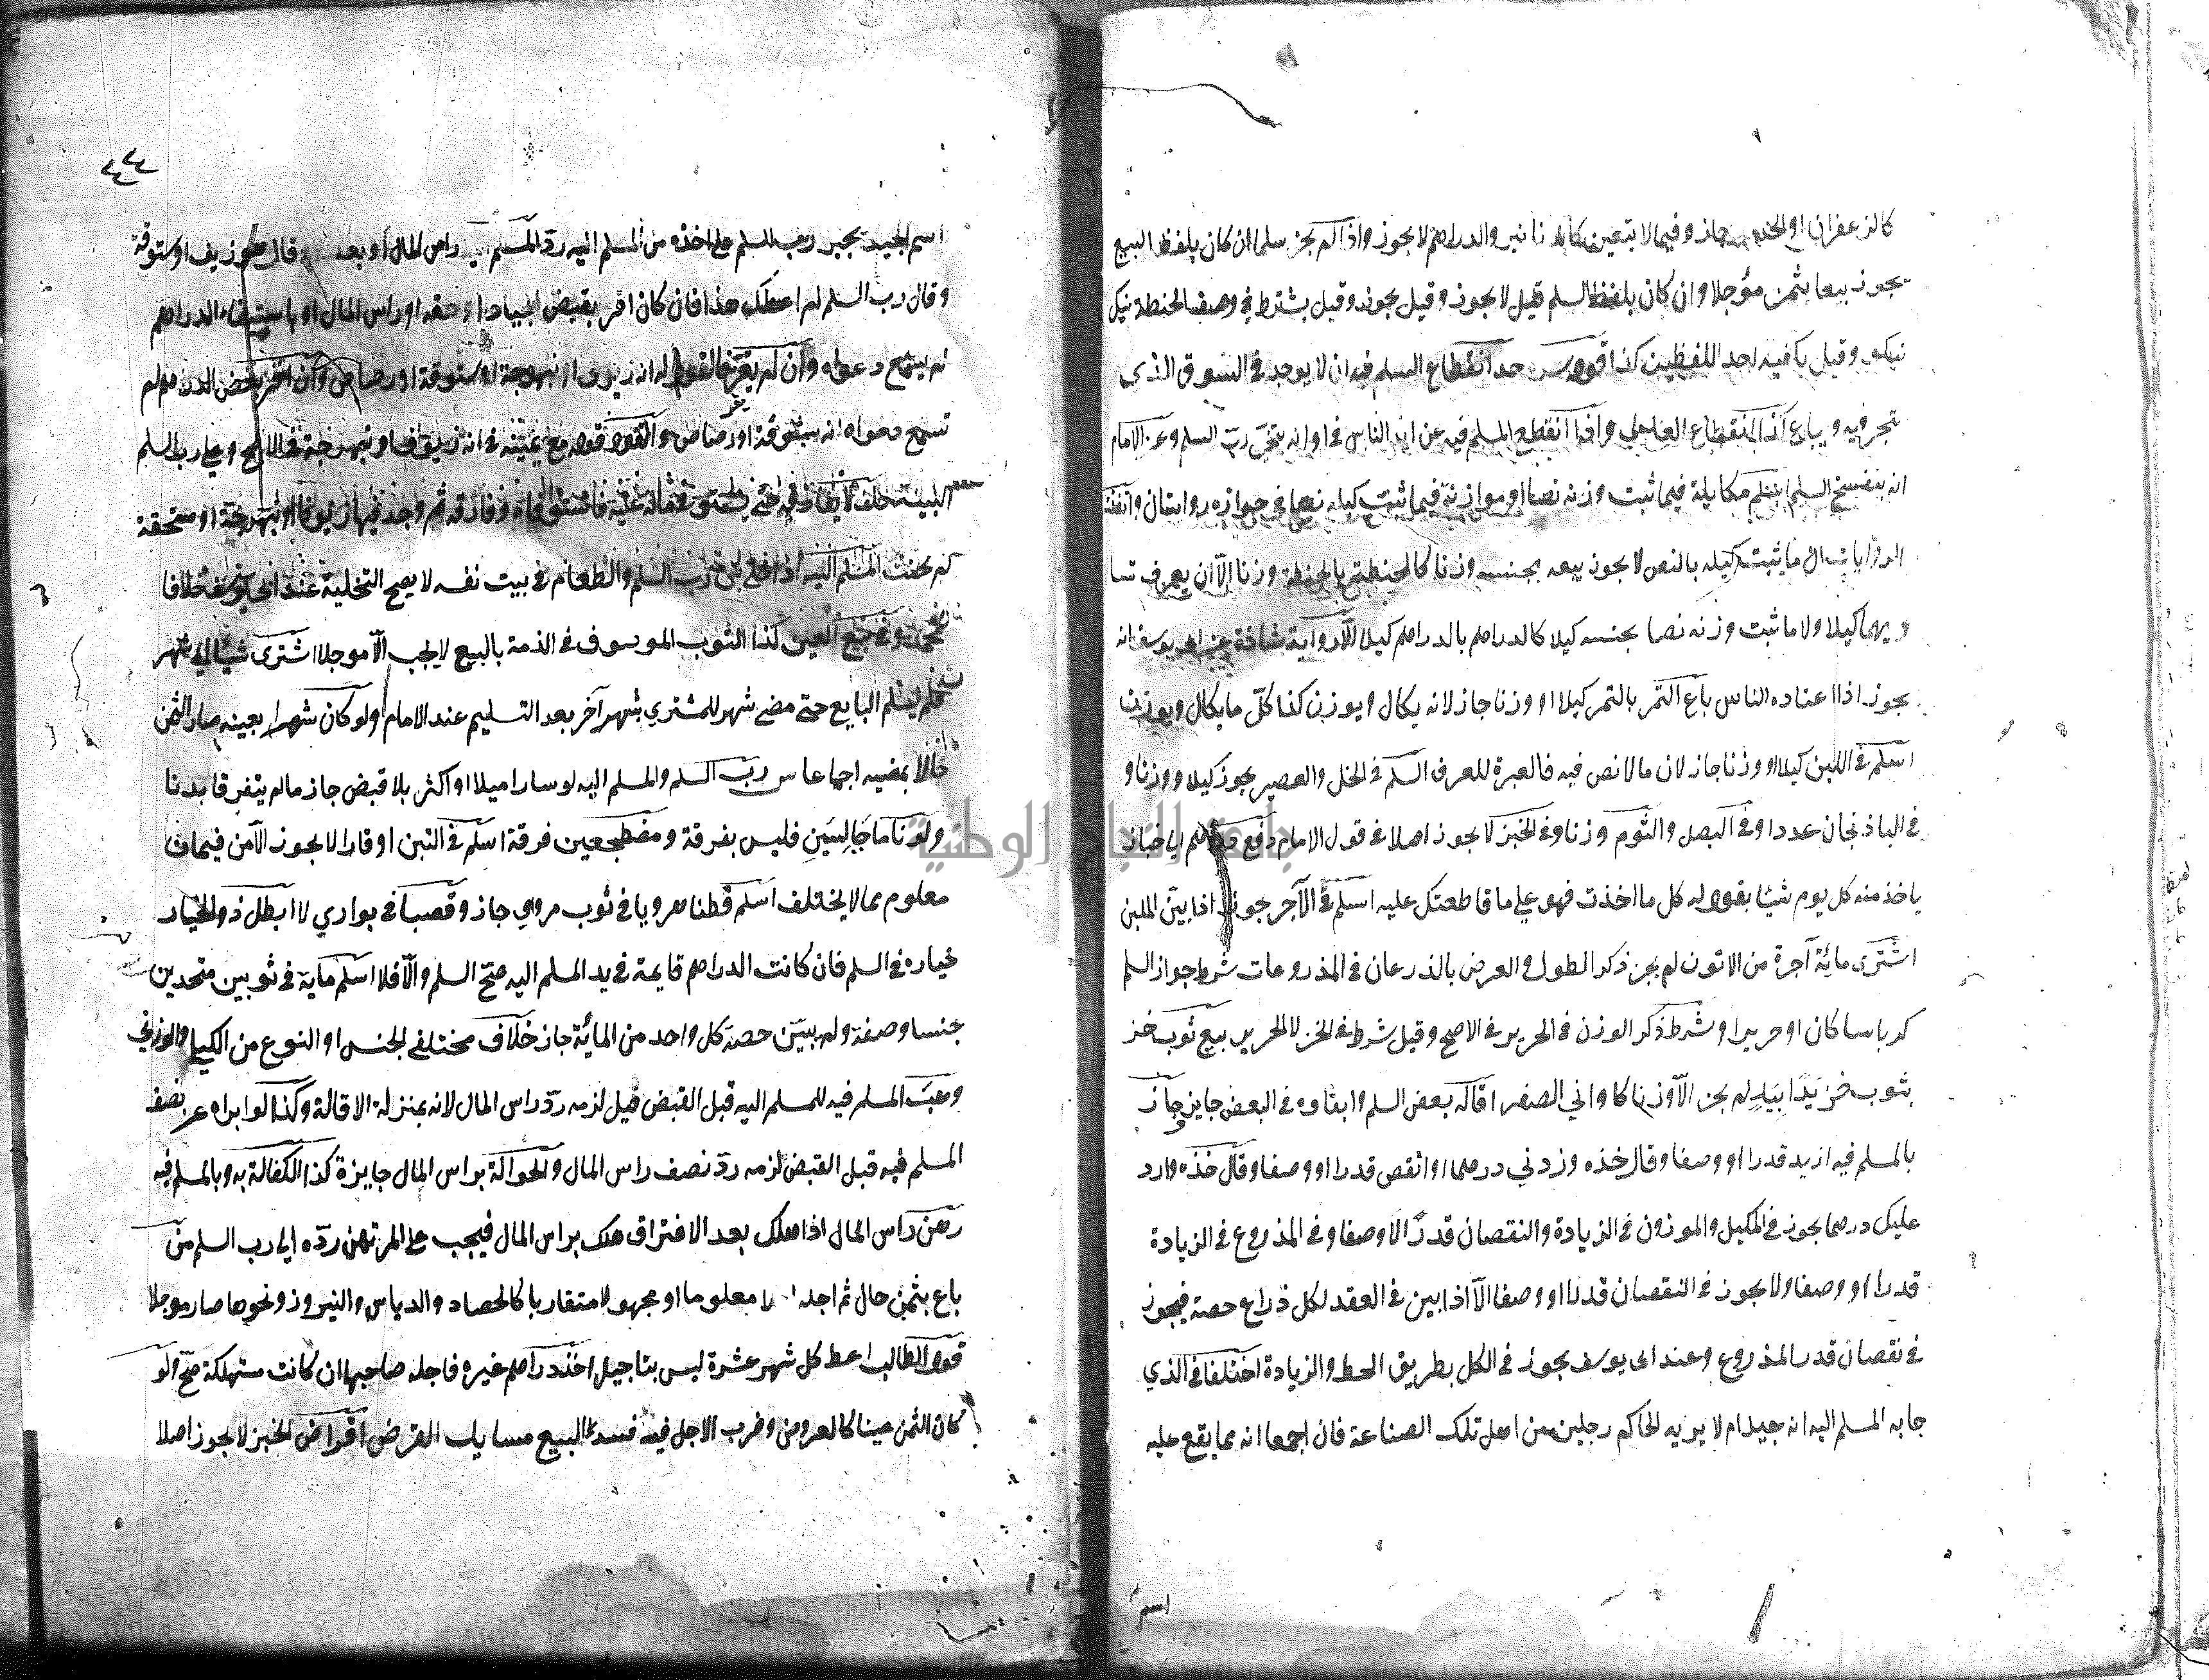 كالزعفران او الخضر جاز وفيما لا يتعين كالدنانير والدراهم لا يجوز واذا لم يجز سلما ان كان بلفظ البيع
يجوز بيعا بثمن مؤجلا وان كان بلفظ السلم قيل لا يجوز وقيل يجوز وقيل يشترط في وصف الحنطة نيك
نيكو وقيل يكفيه احد اللفظين كذا قوله حد انقطاع السلم فيه ان لا يوجد في السوق الذي
تجر فيه ويباع كذا انقطاع واذا انقطع المسلم فيه عن ايد الناس في اوانه يتخير رب السلم وعن الامام
انه ينفسخ السلم اسلم مكايلة فيما ثبت وزنه نصا او موازنة فيما ثبت كيله نصا في جوازه روايتان واتفقت
الروايات ان ما يثبت كيله بالنص لا يجوز بيعه بجنسه وزنا كالحنطة بالحنطة وزنا الا ان يعرف تسا
ويهما كيلا ولا ما ثبت وزنه نصا بجنسه كيلا كالدراهم بالدراهم كيلا الا رواية شاذة عن ابي يوسف انه
يجوز اذا اعتاده الناس باع التمر بالتمر كيلا او وزنا جاز لانه يكال ويوزن كذا كل ما يكال ويوزن
اسلم في اللبن كيلا او وزنا جاز لان ما لا نص فيه فالعبرة للعرف السلم في الخل والعصير يجوز كيلا ووزنا و
في الباذنجان عددا وفي البصل والثوم وزنا وفي الخبز لا يجوز اصلا في قول الامام دفع دراهم الى خباز
ياخذ منه كل يوم شيئا بقوله له كل ما اخذت فهو على ما قاطعتك عليه اسلم في الآجر يجوز اذا بين الملبن
اشترى مائة آجرة من الاتون لم يجز ذكر الطول والعرض بالذرعان في المذروعات شرط جواز السلم
كرباسا كان او حريرا وشرط ذكر الوزن في الحرير في الاصح وقيل شرط في الخز لا الحرير بيع ثوب خز
بثوب خز يدا بيد لم يجز الا وزنا كاواني الصفر اقاله بعض السلم وابقاوه في البعض جايز جآ
بالمسلم فيه ازيد قدرا او وصفا وقال خذه وزدني درهما او انقص قدرا او وصفا وقال خذه وارد
عليك درهما يجوز في المكيل والموزون في الزيادة والنقصان قدرا لا وصفا وفي المذروع في الزيادة
قدرا او وصفا ولا يجوز في النقصان قدرا او وصفا الا اذا بين في العقد لكل ذراع حصة فيجوز
في نقصان قدر المذروع وعند ابي يوسف يجوز في الكل بطريق الحط والزيادة اختلفا في الذي
جا به المسلم اليه انه جيد ام لا يريه الحاكم رجلين من اهل تلك الصناعة فان اجمعا انه مما يقع عليه
اسم
٤٤
اسم الجيد يجبر رب السلم على اخذه من المسلم اليه رد المسلم راس المال او بعد وقال هو زيف او ستوقة
وقال رب السلم لم اعطك هذا فان كان اقر بقبض الجياد او حقه او راس المال او باستيفاء الدراهم
لم يسمع دعواه وان لم يقر فالقول له انه زيوف او نبهرجة او ستوقة او رصاص وان اقر بقبض الدراهم لم
تسمع دعواه انه ستوقة او رصاص والقول قوله مع يمينه في انه زيوف او نبهرجة في الاصح وعلى رب السلم
البينة حلف لا يفارقه حتى يستوفي ماله عليه فاستوفاه وفارقه ثم وجد فيها زيوفا او نبهرجة او مستحقة
لم يحنث المسلم اليه اذا خلى بين رب السلم والطعام في بيت نفسه لا يصح التخلية عند ابي يوسف خلافا
لمحمد وفي بيع العين كذا الثوب الموصوف في الذمة بالبيع لا يجب الا موجلا اشترى شيئا الى شهر
فلم يسلم البايع حتى مضى شهر للمشتري شهر آخر بعد التسليم عند الامام ولو كان شهرا بعينه صار الثمن
حالا بمضيه اجماعا رب السلم والمسلم اليه لو سارا ميلا او اكثر بلا قبض جاز ما لم يتفرقا بدنا
ولو ناما جالسين فليس بفرقة ومضطجعين فرقة اسلم في التبن اوقارا لا يجوز الا من فيمان
معلوم مما لا يختلف اسلم قطنا هرويا في ثوب مروي جاز وقصبا في بواري لا ابطل ذو الخيار
خياره في السلم فان كانت الدراهم قايمة في يد المسلم اليه صح السلم والا فلا اسلم ماية في ثوبين متحدين
جنسا وصفة ولم يبين حصة كل واحد من المائة جاز خلاف مختلفي الجنس او النوع من الكيلي والوزني
وهب المسلم فيه للمسلم اليه قبل القبض قيل لزمه رد راس المال لانه بمنزلة الاقالة وكذا لو ابراه عن نصف
المسلم فيه قبل القبض لزمه رد نصف راس المال والحوالة براس المال جايزة كذا الكفالة به وبالمسلم فيه
رهن راس المال اذا هلك بعد الافتراق هلك براس المال فيجب على المرتهن رده الى رب السلم من
باع بثمن حال ثم اجله معلوما او مجهولا متقاربا كالحصاد والدياس والنيروز ونحوها صار موجلا
قول الطالب اعط كل شهر عشرة ليس بتاجيل اخذ دراهم غيره فاجله صاحبها ان كانت مستهلكة صح ولو
كان الثمن عينا كالعروض وضرب الاجل فيه فسد البيع مسايل القرض اقراض الخبز لا يجوز اصلا